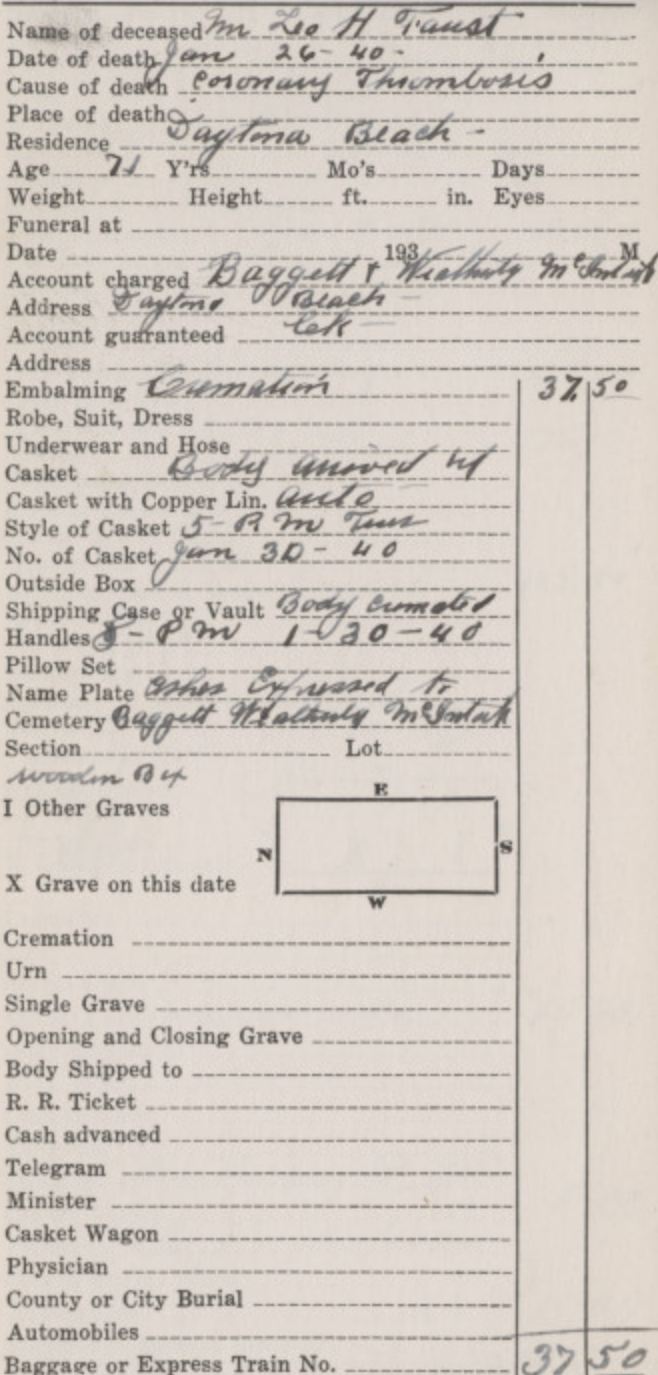 Name of deceased Mr Leo H Faust
Date of death Jan 26-40-
Cause of death Coronary Thrombosis
Place of death
Residence Daytona Beach -
Age 71 Y'rs Mo's Days
Weight Height ft. in. Eyes
Funeral at
Date 193 M
Account charged Baggett & Weatherby McIntosh
Address Daytona Beach -
Account guaranteed
Address
Embalming Cremation 37 50
Robe, Suit, Dress
Underwear and Hose
Casket Body arrived
Casket with Copper Lin. auto
Style of Casket 5 - P M
No. of Casket Jan 30 - 40
Outside Box
Shipping Case or Vault Body cremated
Handles 5 - P M 1 - 30 - 40
Pillow Set
Name Plate Ashes Expressed to
Cemetery Baggett Weatherby McIntosh
Section Lot
wooden Box
E
I Other Graves
N S
X Grave on this date
W
Cremation
Urn
Single Grave
Opening and Closing Grave
Body Shipped to
R. R. Ticket
Cash advanced
Telegram
Minister
Casket Wagon
Physician
County or City Burial
Automobiles
Baggage or Express Train No. 37 50